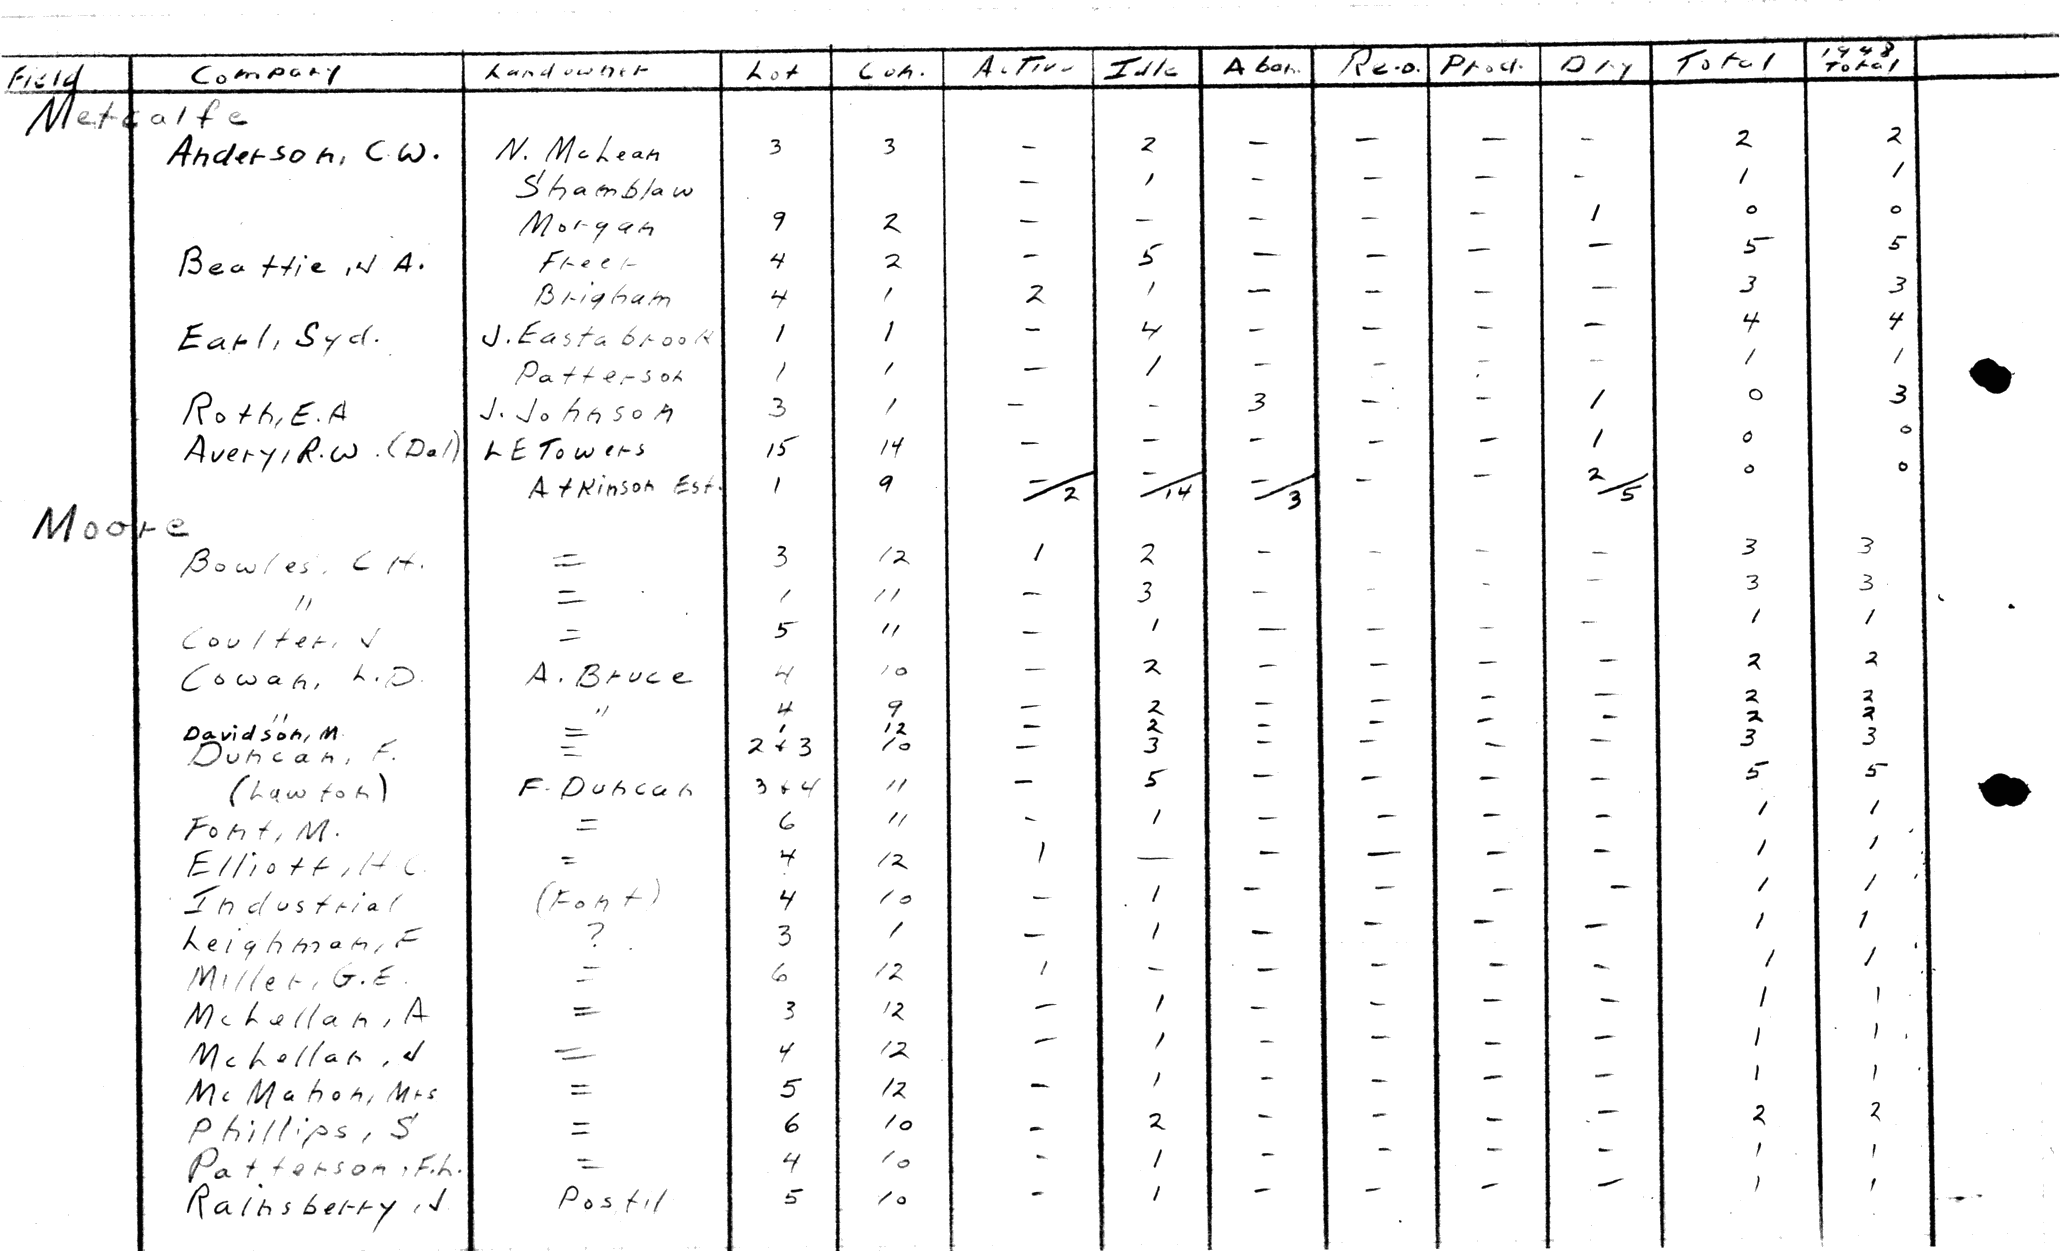 Field Company Landowner Lot Con. Active Idle Abon. Re.o. Prod. Dry Total 1948 Total
Metcalfe
Anderson, C.W. N. McLean 3 3 - 2 - - - - 2 2
Shamblaw - 1 - - - - 1 1
Morgan 9 2 - - - - - 1 0 0
Beattie, J A. Freer 4 2 - 5 - - - - 5 5
Brigham 4 1 2 1 - - - - 3 3
Earl, Syd. J. Eastabrook 1 1 - 4 - - - - 4 4
Patterson 1 1 - 1 - - - - 1 1
Roth, E.A J. Johnson 3 1 - - 3 - - 1 0 3
Avery, R.W. (Dal) L E Towers 15 14 - - - - - 1 0 0
Atkinson Est. 1 9 -/2 -/14 -/3 - - 2/5 0 0
Moore
Bowles, C H. = 3 12 1 2 - - - - 3 3
" = 1 11 - 3 - - - - 3 3
Coulter, J = 5 11 - 1 - - - - 1 1
Cowan, L.D. A. Bruce 4 10 - 2 - - - - 2 2
" " 4 9 - 2 - - - - 2 2
Davidson, M. = 1 12 - 2 - - - - 2 2
Duncan, F. = 2 + 3 10 - 3 - - - - 3 3
(Lawton) F. Duncan 3 + 4 11 - 5 - - - - 5 5
Font, M. = 6 11 - 1 - - - - 1 1
Elliott, H C. = 4 12 1 - - - - - 1 1
Industrial (Font) 4 10 - 1 - - - - 1 1
Leighman, F ? 3 1 - 1 - - - - 1 1
Miller, G.E. = 6 12 1 - - - - - 1 1
McLellan, A = 3 12 - 1 - - - - 1 1
McLellan, J = 4 12 - 1 - - - - 1 1
McMahon, Mrs = 5 12 - 1 - - - - 1 1
Phillips, S = 6 10 - 2 - - - - 2 2
Patterson, F.L. = 4 10 - 1 - - - - 1 1
Rainsberry, J Postil 5 10 - 1 - - - - 1 1